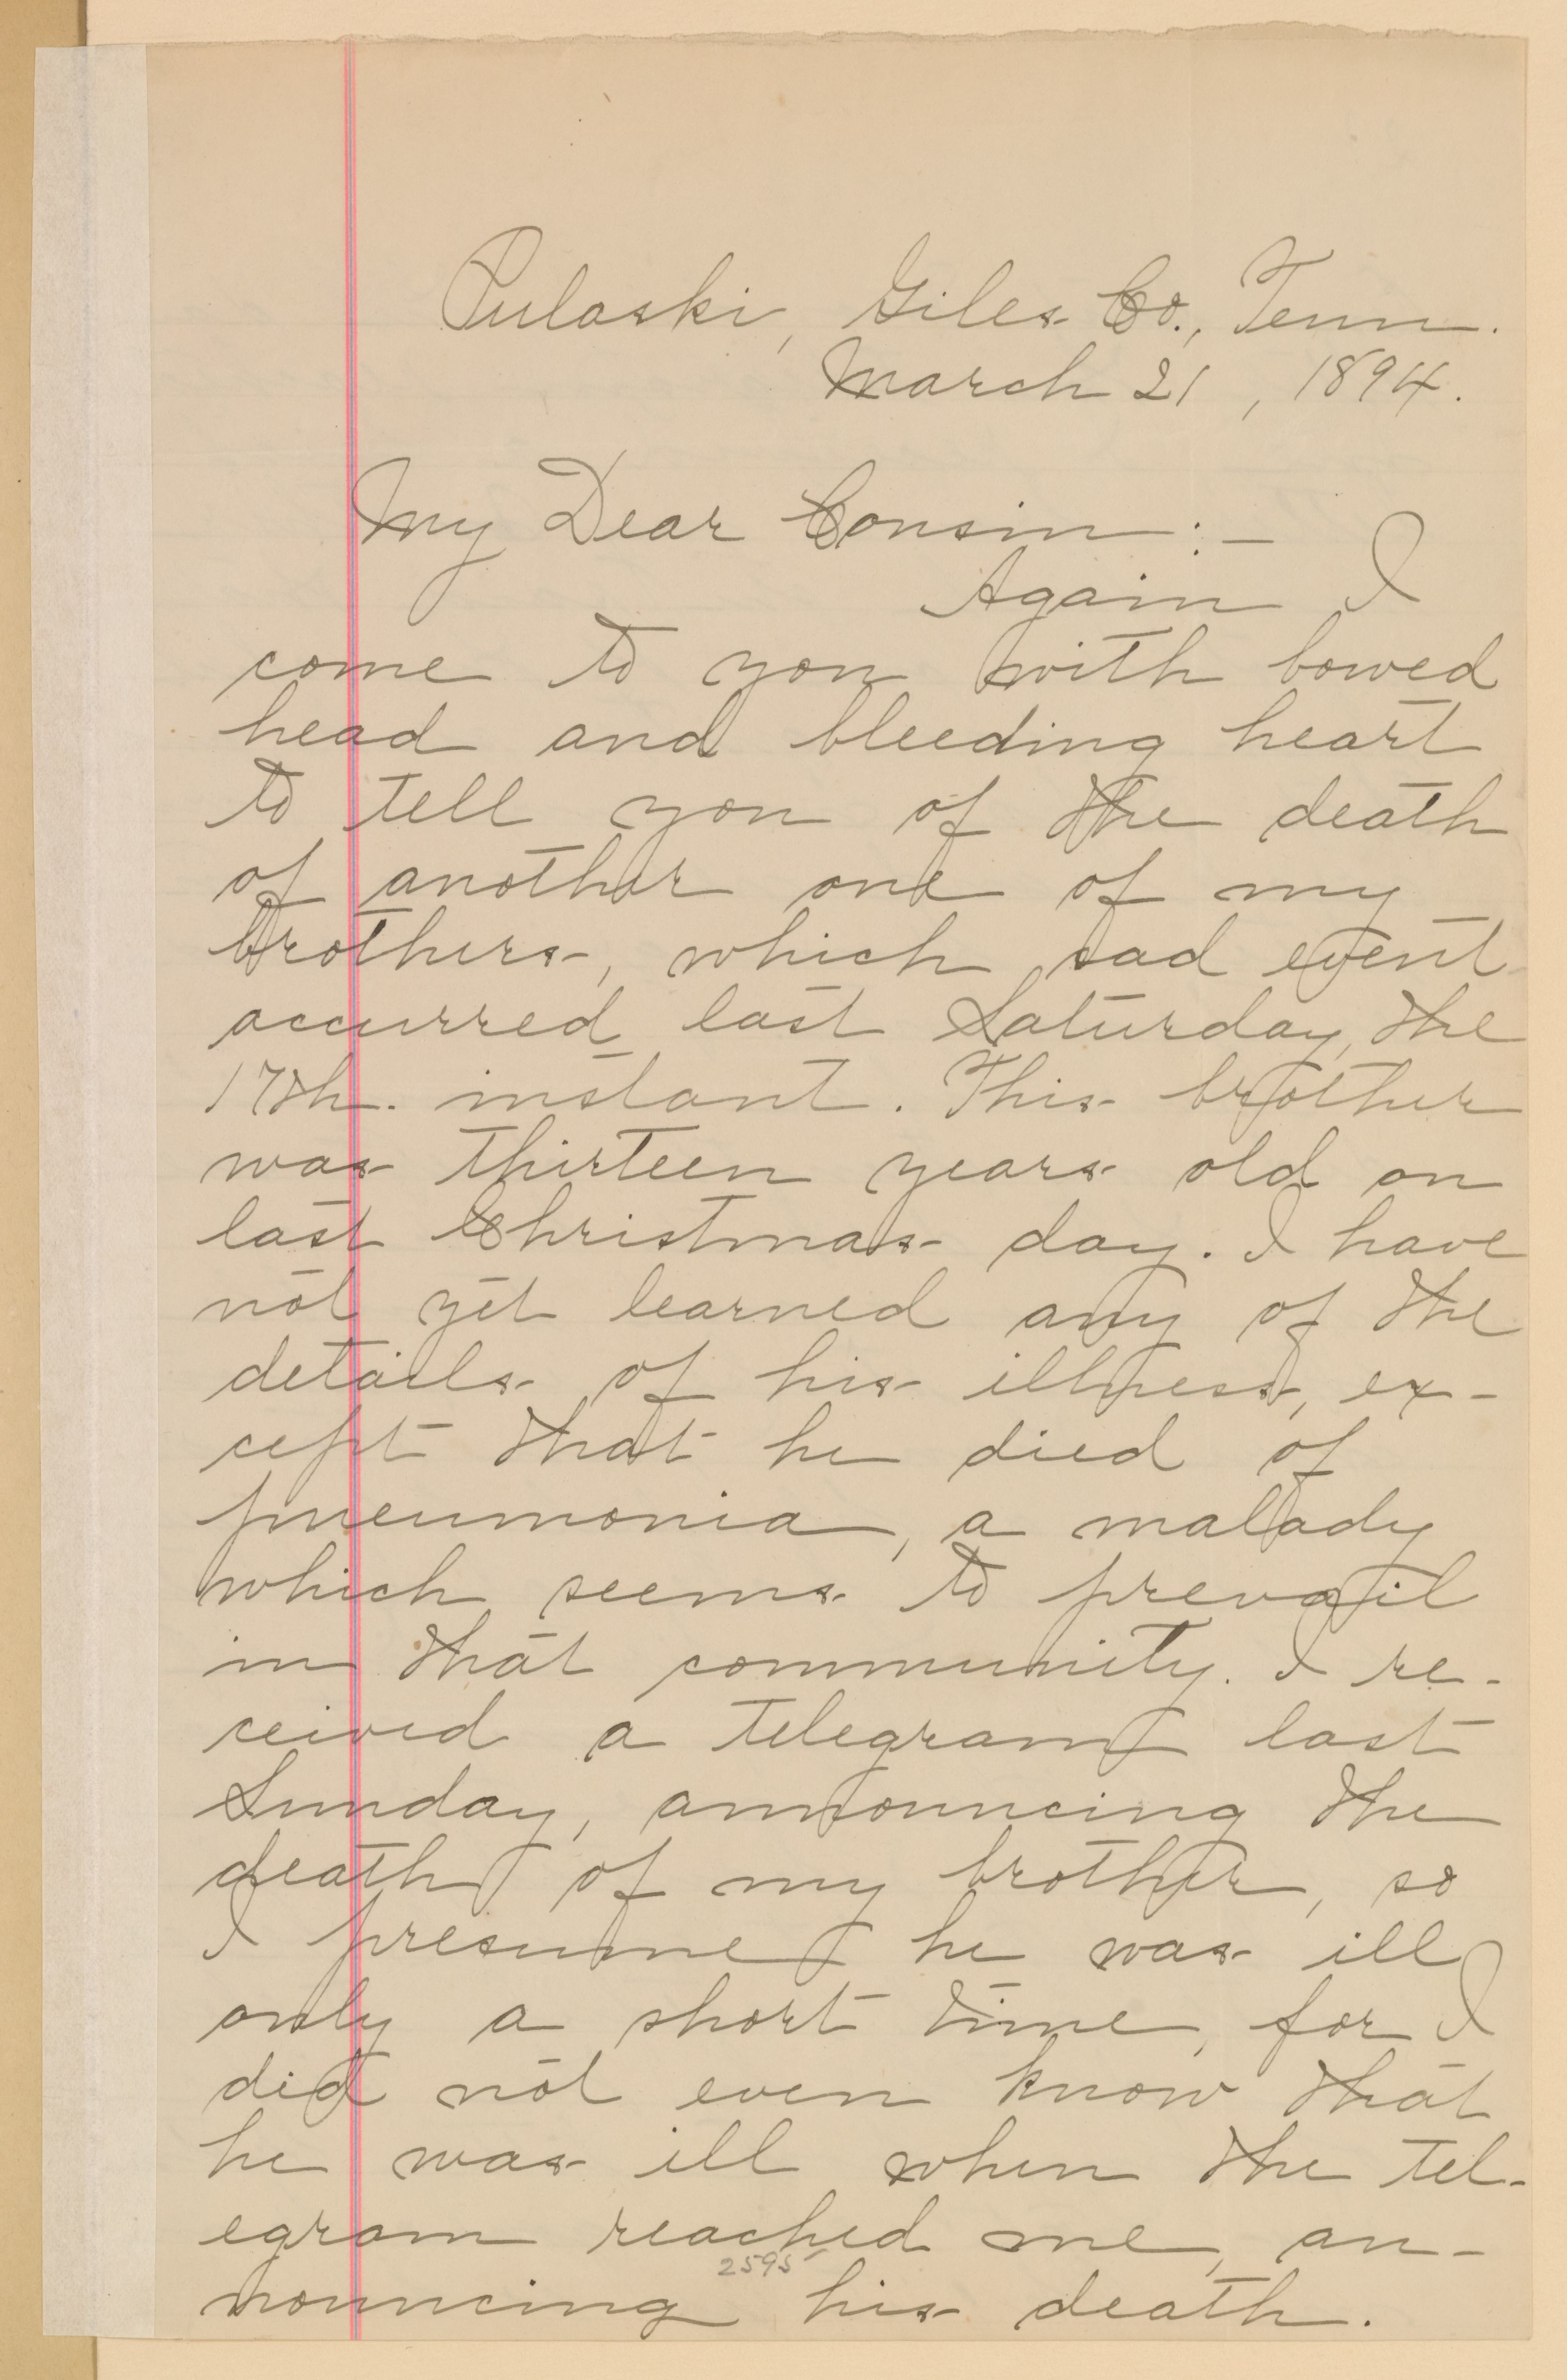 Pulaski, Giles Co., Tenn.
March 21, 1894.
My Dear Cousin:—
Again I
come to you with bowed
head and bleeding heart
to tell you of the death
of another one of my
brothers, which sad event
occurred last Saturday, the
17th. instant. This brother
was thirteen years old on
last Christmas day. I have
not yet learned any of the
details of his illness, ex-
cept that he died of
pneumonia, a malady
which seems to prevail
in that community. I re-
ceived a telegram last
Sunday, announcing the
death of my brother, so
I presume he was ill
only a short time, for I
did not even know that
he was ill when the tel-
egram reached me, an-
2595
nouncing his death.